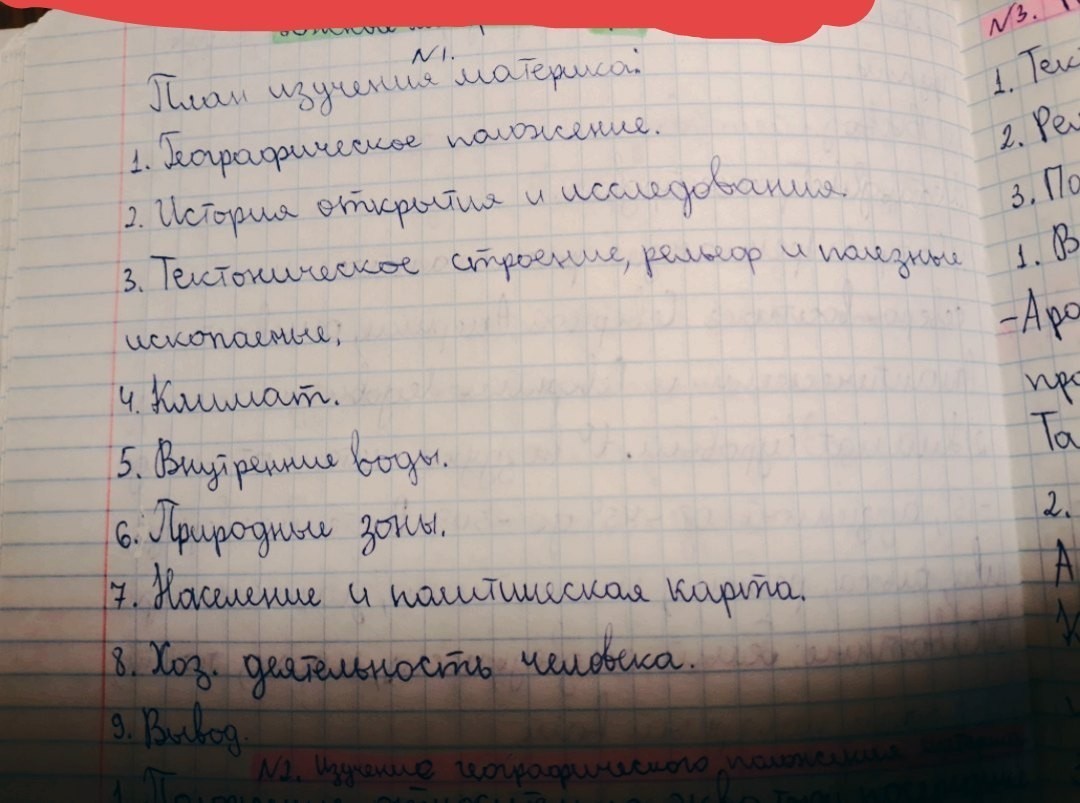 N1.
План изучения материка:
1. Географическое положение.
2. История открытия и исследования.
3. Тектоническое строение, рельеф и полезные
ископаемые.
4. Климат.
5. Внутренние воды.
6. Природные зоны.
7. Население и политическая карта.
8. Хоз. деятельность человека.
9. Вывод.
N2. Изучение географического положения
1. Положение относительно экватора
N3.
1. Тек
2. Рел
3. По
1. В
про
Та
2.
А